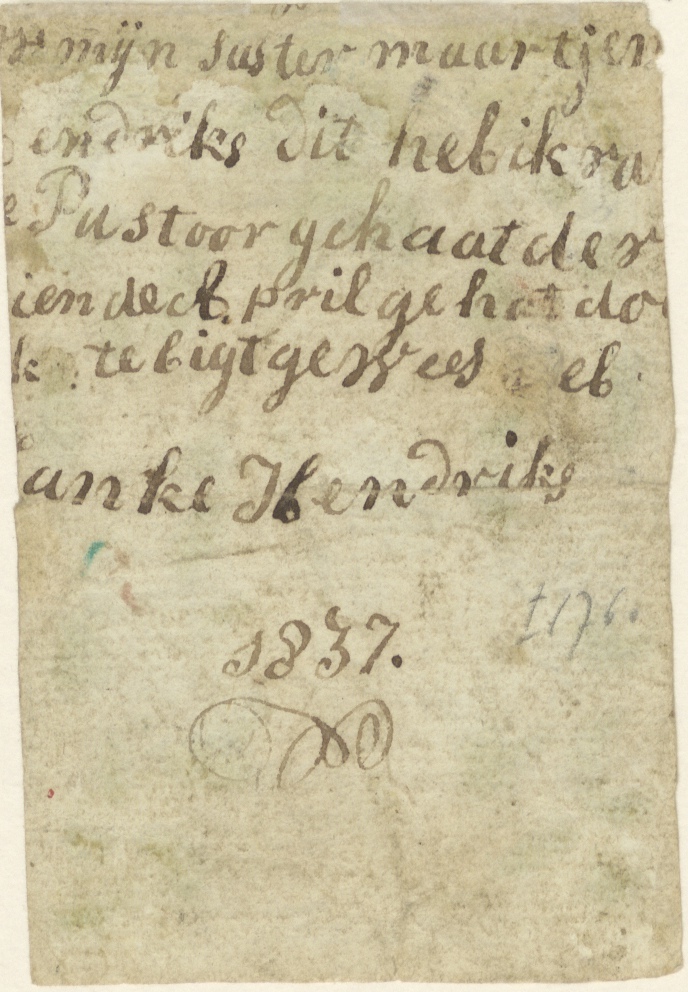 mijn suster maartjen
endriks dit heb ik va
e Pustoor gehaat der
ien de april gehat do
k te bigt gewees eb
anke Hendriks
1837.